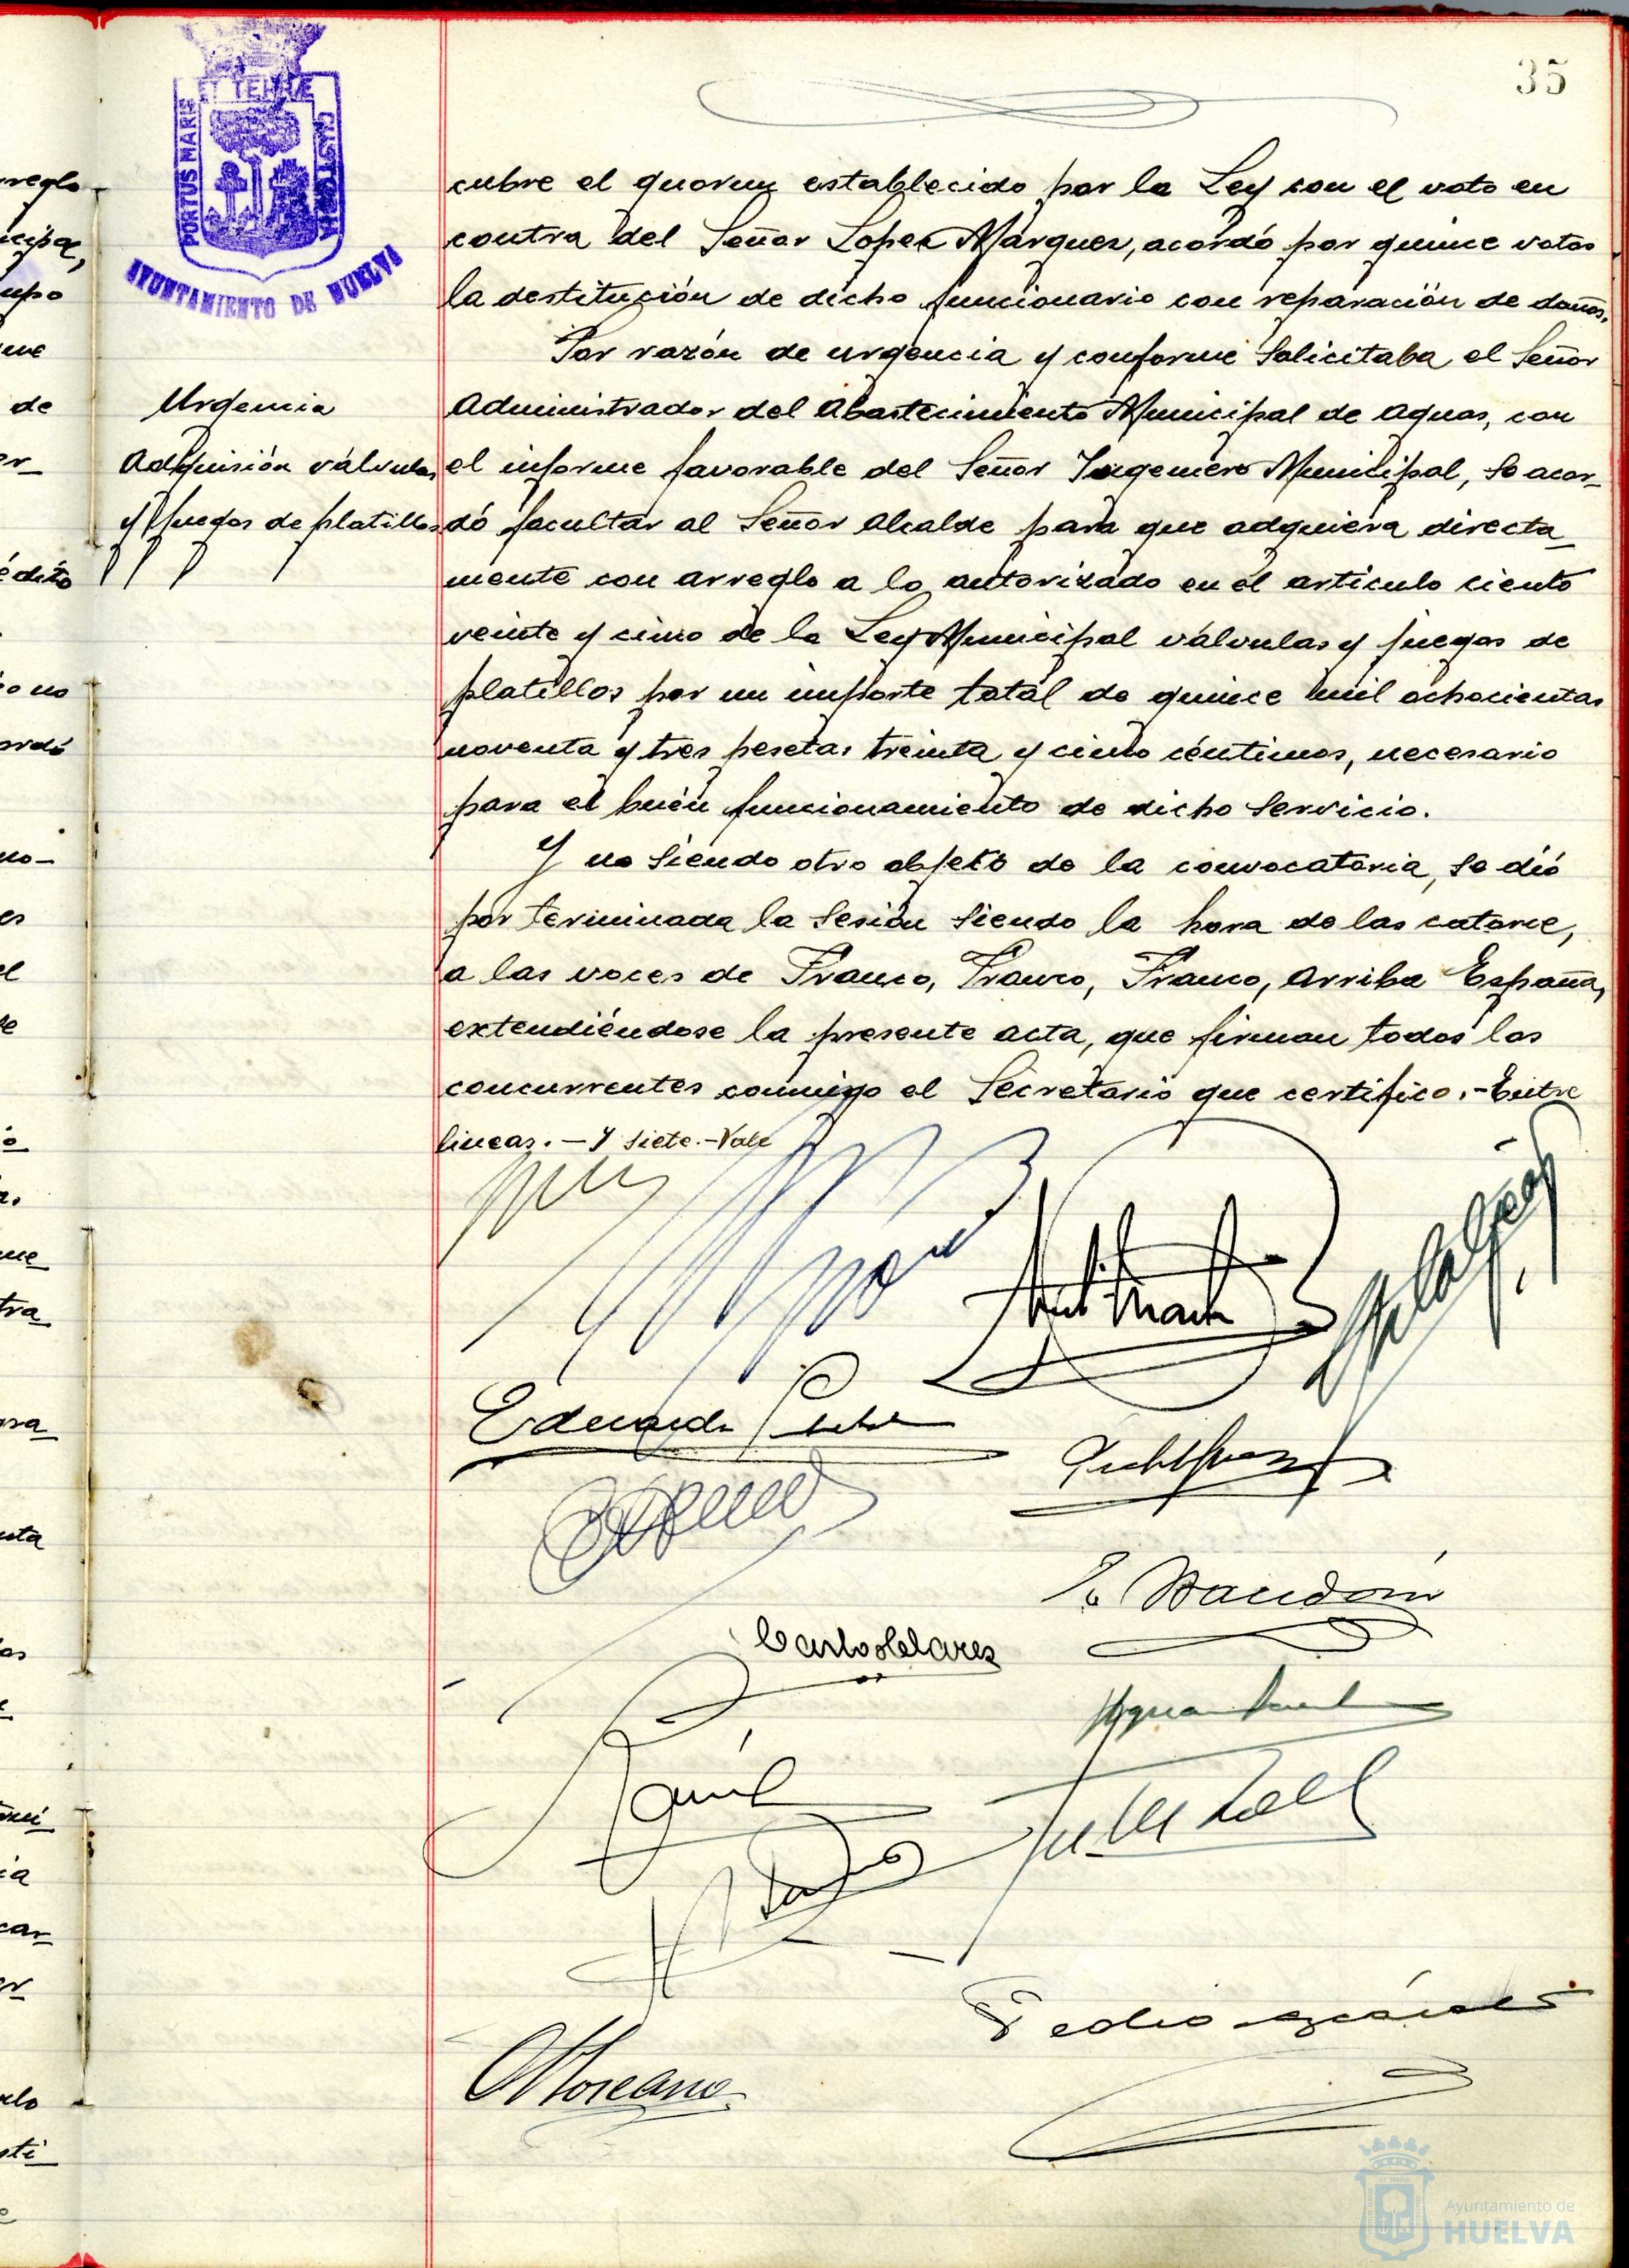 35
PORTUS MARIS ET TERRE CUSTODIA
AYUNTAMIENTO DE HUELVA
cubre el quorum establecido por la Ley con el voto en
contra del Señor Lopez Márquez, acordó por quince votos
la destitución de dicho funcionario con reparación de daños.
Por razón de urgencia y conforme solicitaba el Señor
Urgencia
Administrador del Abastecimiento Municipal de aguas, con
Adquisión válvulas
el informe favorable del Señor Ingeniero Municipal, se acor-
y juegos de platillos
dó facultar al Señor Alcalde para que adquiera directa-
mente con arreglo a lo autorizado en el artículo ciento
veinte y cinco de la Ley Municipal válvulas y juegos de
platillos por un importe total de quince mil ochocientas
noventa y tres pesetas treinta y cinco céntimos, necesario
para el buen funcionamiento de dicho Servicio.
Y no siendo otro objeto de la convocatoria, se dió
por terminada la sesión siendo la hora de las catorce,
a las voces de Franco, Franco, Franco, Arriba España,
extendiéndose la presente acta, que firman todos los
concurrentes conmigo el Secretario que certifico.-Entre
lineas.-Y siete.-Vale
Eduardo
Carlos
Pedro
Ayuntamiento de
HUELVA